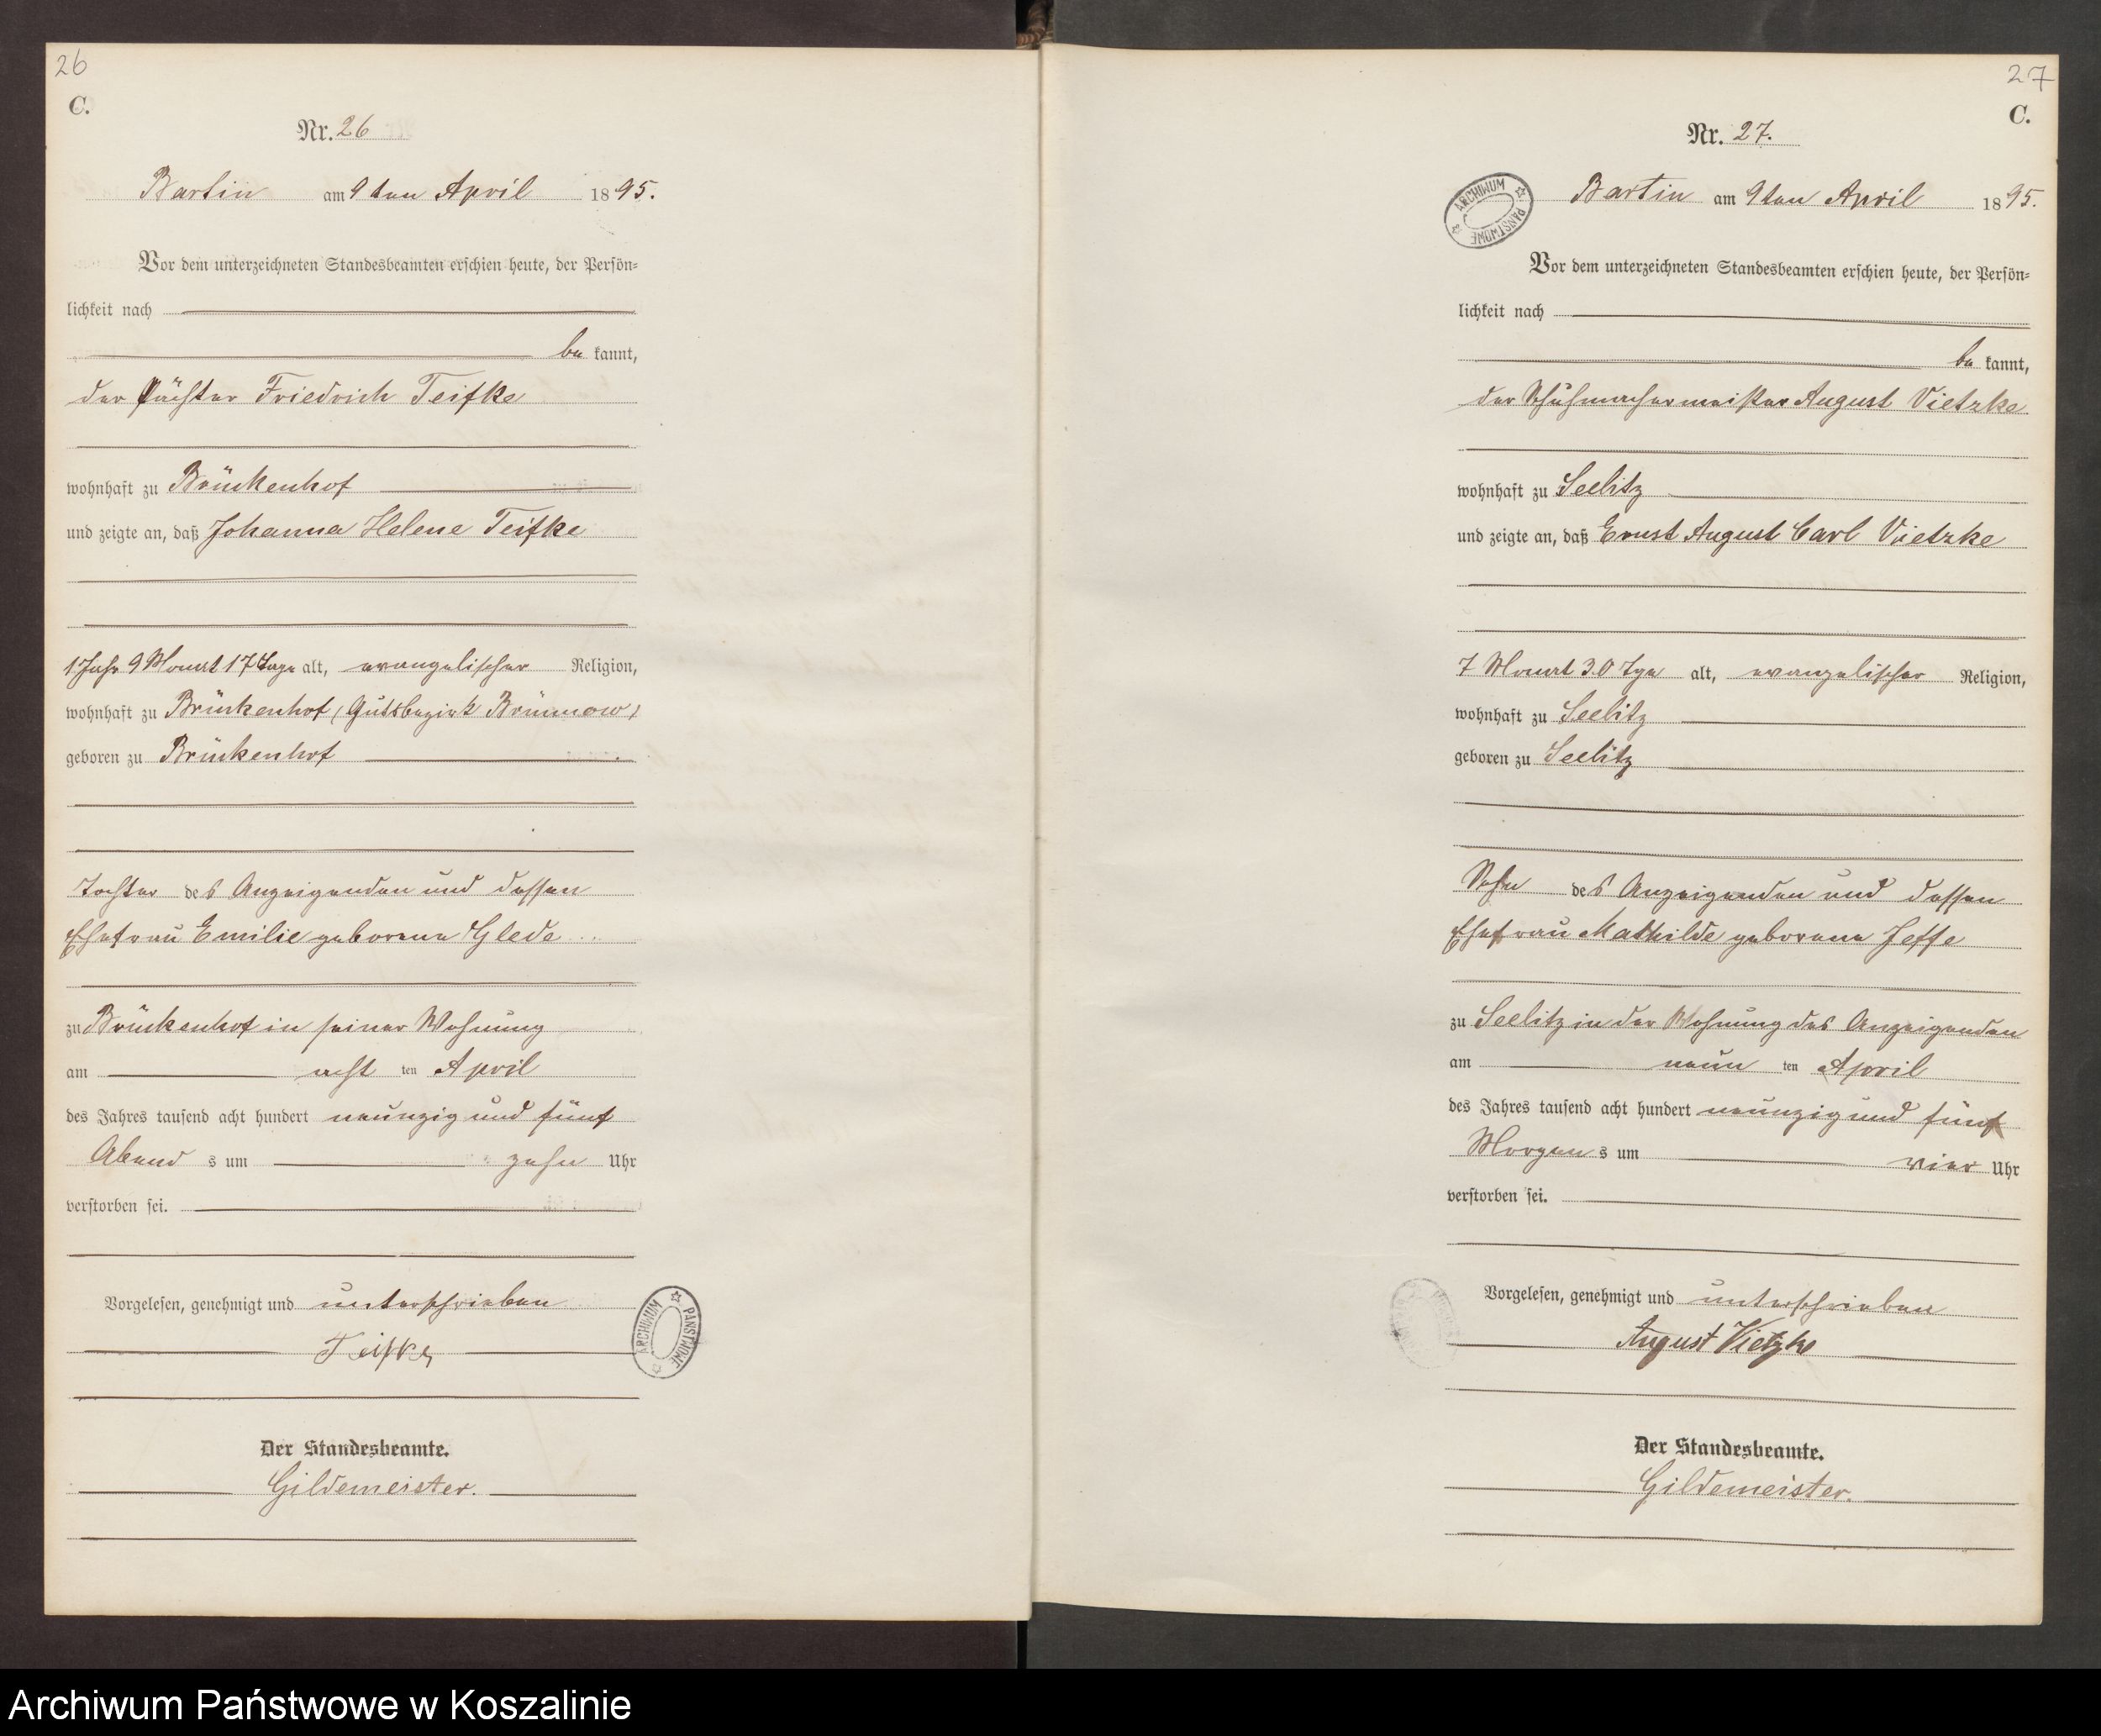 26
C.
Nr. 26
Bartin am 9ten April 1895.
Vor dem unterzeichneten Standesbeamten erschien heute, der Persön-
lichkeit nach
be kannt,
der Pächter Friedrich Teifke
wohnhaft zu Brückenhof
und zeigte an, daß Johanna Helene Teifke
1 Jahr 9 Monat 17 Tage alt, evangelischer Religion,
wohnhaft zu Brückenhof (Gutsbezirk Brünnow)
geboren zu Brückenhof
Tochter des Anzeigenden und dessen
Ehefrau Emilie geborene Glede
zu Brückenhof in seiner Wohnung
am acht ten April
des Jahres tausend acht hundert neunzig und fünf
Abend s um zehn Uhr
verstorben sei.
Vorgelesen, genehmigt und unterschrieben
Teifke
ARCHIWUM PAŃSTWOWE
Der Standesbeamte.
Gildemeister.
27
C.
Nr. 27.
ARCHIWUM PAŃSTWOWE
Bartin am 9ten April 1895.
Vor dem unterzeichneten Standesbeamten erschien heute, der Persön-
lichkeit nach
be kannt,
der Schuhmachermeister August Vietzke
wohnhaft zu Seelitz
und zeigte an, daß Ernst August Carl Vietzke
7 Monat 30 Tge alt, evangelischer Religion,
wohnhaft zu Seelitz
geboren zu Seelitz
Sohn des Anzeigenden und dessen
Ehefrau Mathilde geborene
zu Seelitz in der Wohnung des Anzeigenden
am neun ten April
des Jahres tausend acht hundert neunzig und fünf
Morgen s um vier Uhr
verstorben sei.
Vorgelesen, genehmigt und unterschrieben
August Vietzke
Der Standesbeamte.
Gildemeister.
Archiwum Państwowe w Koszalinie